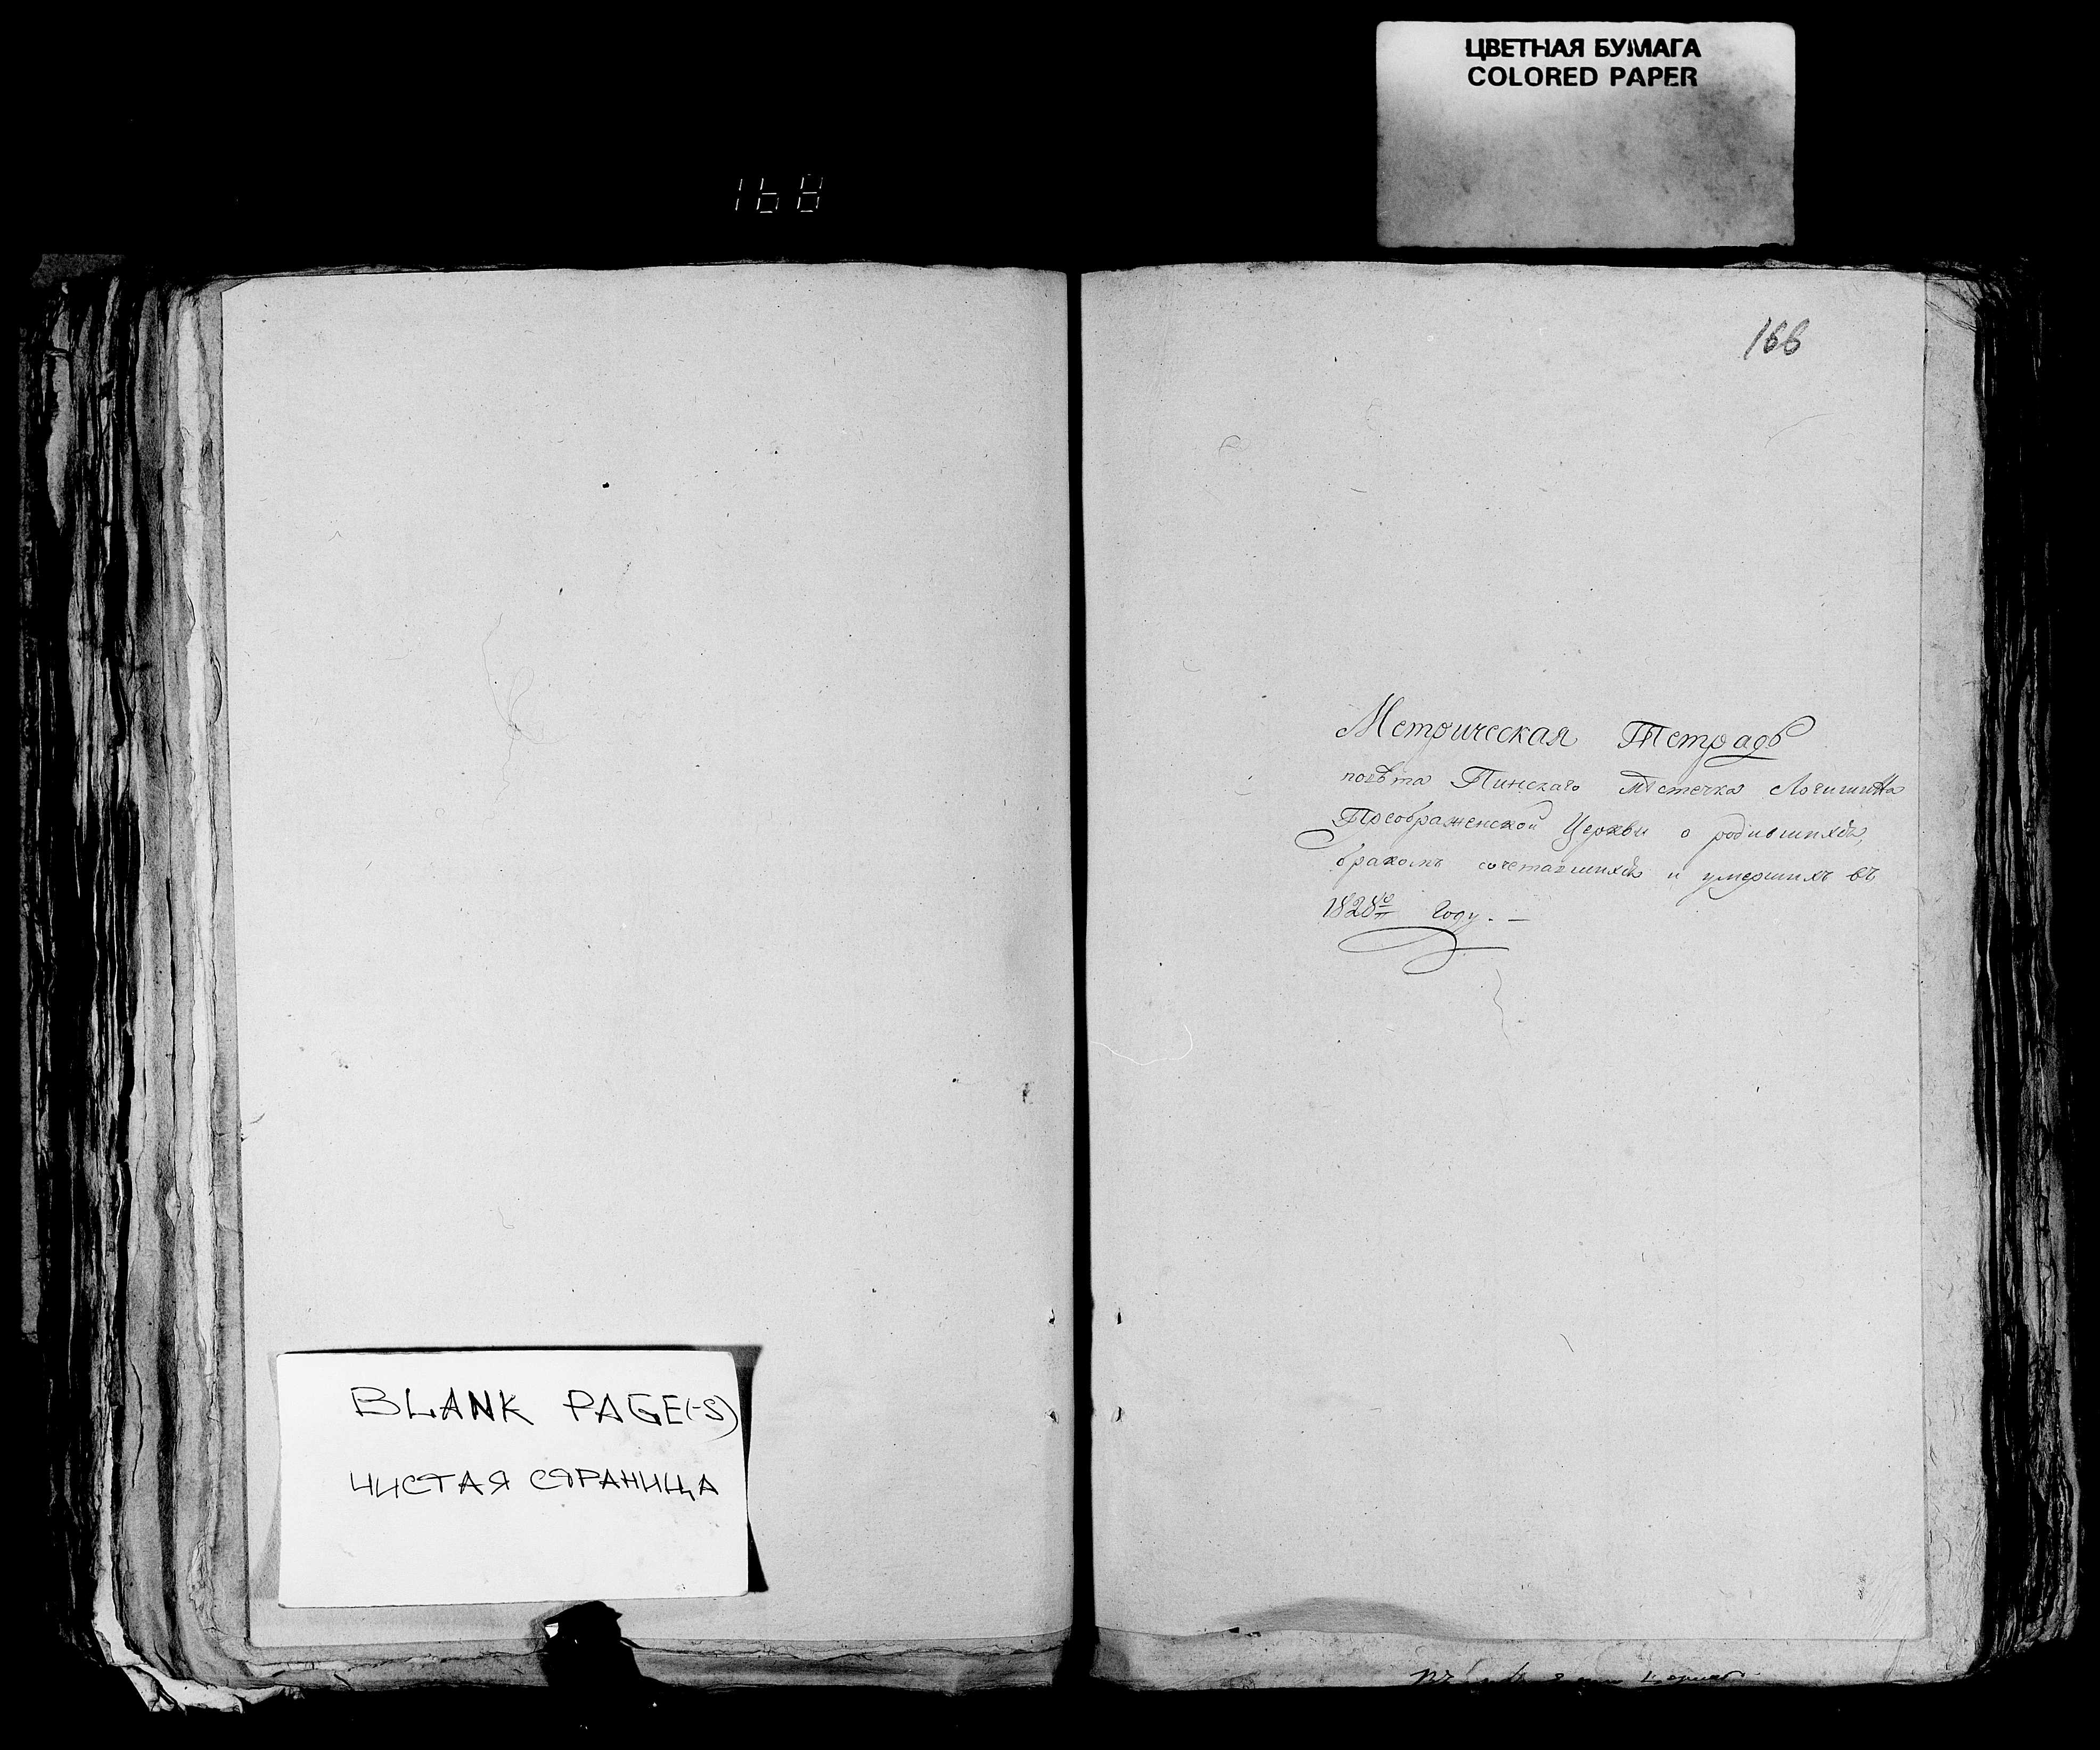 ЦВЕТНАЯ БУМАГА
COLORED PAPER
168
166
Метрическая Тетрадь
повѣта Пинскаго мѣстечка Логишина
Преображенской Церкви о родившихся,
бракомъ сочетавшихся и умершихъ въ
1828м году. —
BLANK PAGE(-S)
ЧИСТАЯ СТРАНИЦА